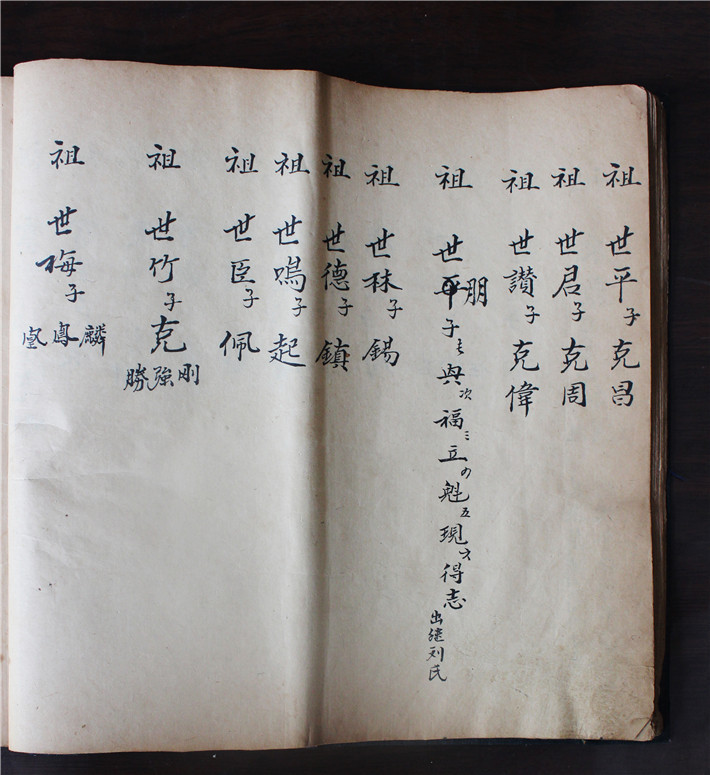 祖 世平子克昌
祖 世君子克周
祖 世讃子克偉
祖 世平朋子長與次福三立四魁五現六得志出継刘氏
祖 世秝子錫
祖 世德子鎮
祖 世鳴子起
祖 世臣子佩
祖 世竹子克剛強勝
祖 世梅子麟鳳